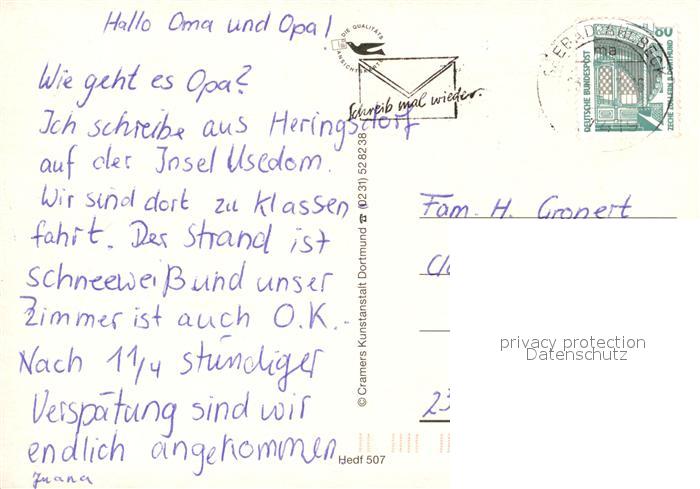 Hallo Oma und Opa!
Wie geht es Opa?
Ich schreibe aus Heringsdorf
auf der Insel Usedom.
Wir sind dort zu Klassen
fahrt. Der Strand ist
schneeweiß und unser
Zimmer ist auch O.K.
Nach 1 1/4 stündiger
Verspätung sind wir
endlich angekommen.
Juana
DIE QUALITÄTS
ANSICHTSKARTE
Schreib mal wieder.
SEEBAD AHLBECK
80
DEUTSCHE BUNDESPOST
ZECHE ZOLLERN II DORTMUND
© Cramers Kunstanstalt Dortmund ☎ (0231) 528238
Fam. H. Gronert
23
privacy protection
Datenschutz
Hedf 507